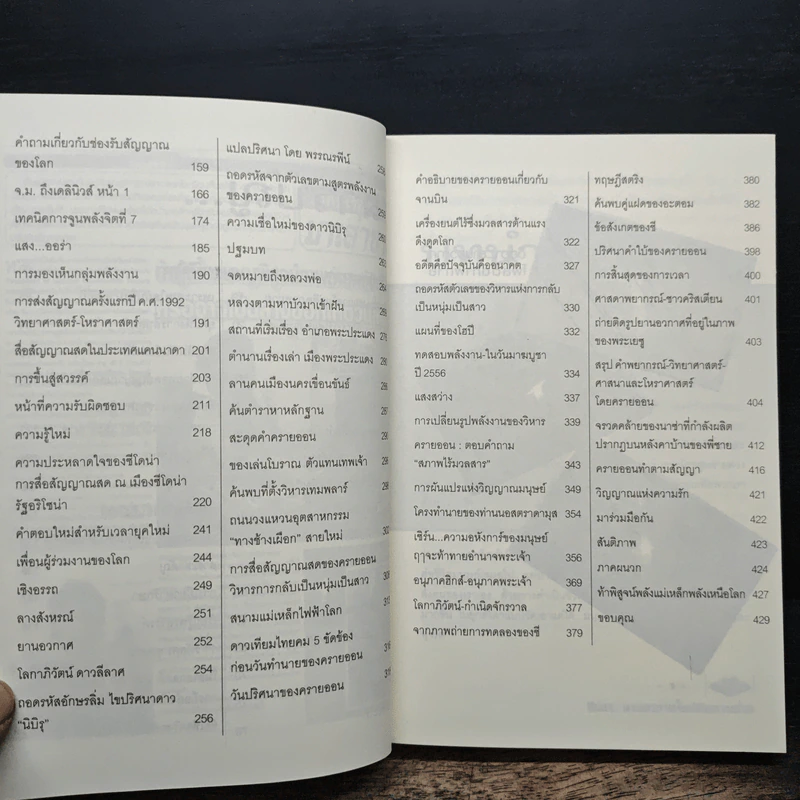 คำถามเกี่ยวกับช่องรับสัญญาณ
ของโลก 159
จ.ม. ถึงเดลินิวส์ หน้า 1 166
เทคนิคการจูนพลังจิตที่ 7 174
แสง...ออร่า 185
การมองเห็นกลุ่มพลังงาน 190
การส่งสัญญาณครั้งแรกปี ค.ศ.1992
วิทยาศาสตร์-โหราศาสตร์ 191
สื่อสัญญาณสดในประเทศแคนนาดา 201
การขึ้นสู่สวรรค์ 203
หน้าที่ความรับผิดชอบ 211
ความรู้ใหม่ 218
ความประหลาดใจของซีโดน่า
การสื่อสัญญาณสด ณ เมืองซีโดน่า
รัฐอริโซน่า 220
คำตอบใหม่สำหรับเวลายุคใหม่ 241
เพื่อนผู้ร่วมงานของโลก 244
เชิงอรรถ 249
ลางสังหรณ์ 251
ยานอวกาศ 252
โลกาภิวัตน์ ดาวลีลาศ 254
ถอดรหัสอักษรลิ่ม ไขปริศนาดาว
"นิบิรุ" 256
แปลปริศนา โดย พรรณรพีน์
ถอดรหัสจากตัวเลขตามสูตรพลังงาน
ของครายออน
ความเชื่อใหม่ของดาวนิบิรุ
ปฐมบท
จดหมายถึงหลวงพ่อ
หลวงตามหาบัวมาเข้าฝัน
สถานที่เริ่มเรื่อง อำเภอพระประแดง
ตำนานเรื่องเล่า เมืองพระประแดง
ลานคนเมืองนครเขื่อนขันธ์
ค้นตำราหาหลักฐาน
สะดุดคำครายออน
ของเล่นโบราณ ตัวแทนเทพเจ้า
ค้นพบที่ตั้งวิหารเทมพลาร์
ถนนวงแหวนอุตสาหกรรม
"ทางช้างเผือก" สายใหม่
การสื่อสัญญาณสดของครายออน
วิหารการกลับเป็นหนุ่มเป็นสาว
สนามแม่เหล็กไฟฟ้าโลก
ดาวเทียมไทยคม 5 ขัดข้อง
ก่อนวันทำนายของครายออน
วันปริศนาของครายออน
คำอธิบายของครายออนเกี่ยวกับ
จานบิน 321
เครื่องยนต์ไร้ซึ่งมวลสารต้านแรง
ดึงดูดโลก 322
อดีตคือปัจจุบันคืออนาคต 327
ถอดรหัสตัวเลขของวิหารแห่งการกลับ
เป็นหนุ่มเป็นสาว 330
แผนที่ของโฮปี 332
ทดสอบพลังงาน-ในวันมาฆบูชา
ปี 2556 334
แสงสว่าง 337
การเปลี่ยนรูปพลังงานของวิหาร 339
ครายออน : ตอบคำถาม
"สภาพไร้มวลสาร" 343
การผันแปรแห่งวิญญาณมนุษย์ 349
โครงทำนายของท่านนอสตราดามุส 354
เซิร์น...ความอหังการ์ของมนุษย์
ฤๅจะท้าทายอำนาจพระเจ้า 356
อนุภาคฮิกส์-อนุภาคพระเจ้า 369
โลกาภิวัตน์-กำเนิดจักรวาล 377
จากภาพถ่ายการทดลองของซี 379
ทฤษฎีสตริง 380
ค้นพบคู่แฝดของอะตอม 382
ข้อสังเกตของซี 386
ปริศนาคำใบ้ของครายออน 398
การสิ้นสุดของการเวลา 400
ศาสดาพยากรณ์-ชาวคริสเตียน 401
ถ่ายติดรูปยานอวกาศที่อยู่ในภาพ
ของพระเยซู 403
สรุป คำพยากรณ์-วิทยาศาสตร์-
ศาสนาและโหราศาสตร์
โดยครายออน 404
จรวดคล้ายของนาซ่าที่กำลังผลิต
ปรากฏบนหลังคาบ้านของพี่ชาย 412
ครายออนทำตามสัญญา 416
วิญญาณแห่งความรัก 421
มาร่วมมือกัน 422
สันติภาพ 423
ภาคผนวก 424
ท้าพิสูจน์พลังแม่เหล็กพลังเหนือโลก 427
ขอบคุณ 429